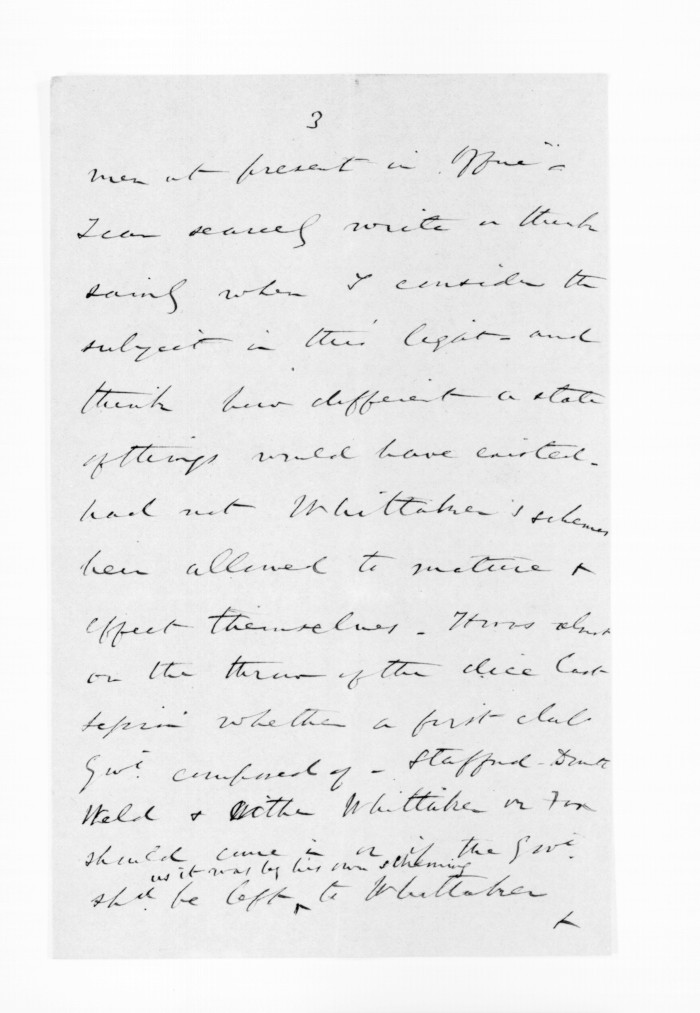 3
men at present in Office" -
I can scarcely write or think
sainly when I consider the
subject in this light - and
think how different a state
of things would have existed -
had not Whittaker's schemes
been allowed to mature &
effect themselves. It was almost
on the throw of the dice last
session whether a first class
Govt. composed of - Stafford -
Weld & either Whittaker or Fox
should come in or if the Govt.
as it was by his own scheming
shd. be left to Whittaker
&